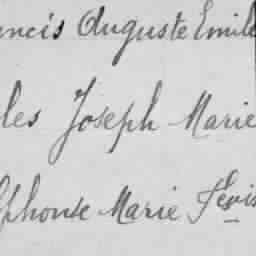 ncis Auguste Emile
les Joseph Marie
lphonse Marie